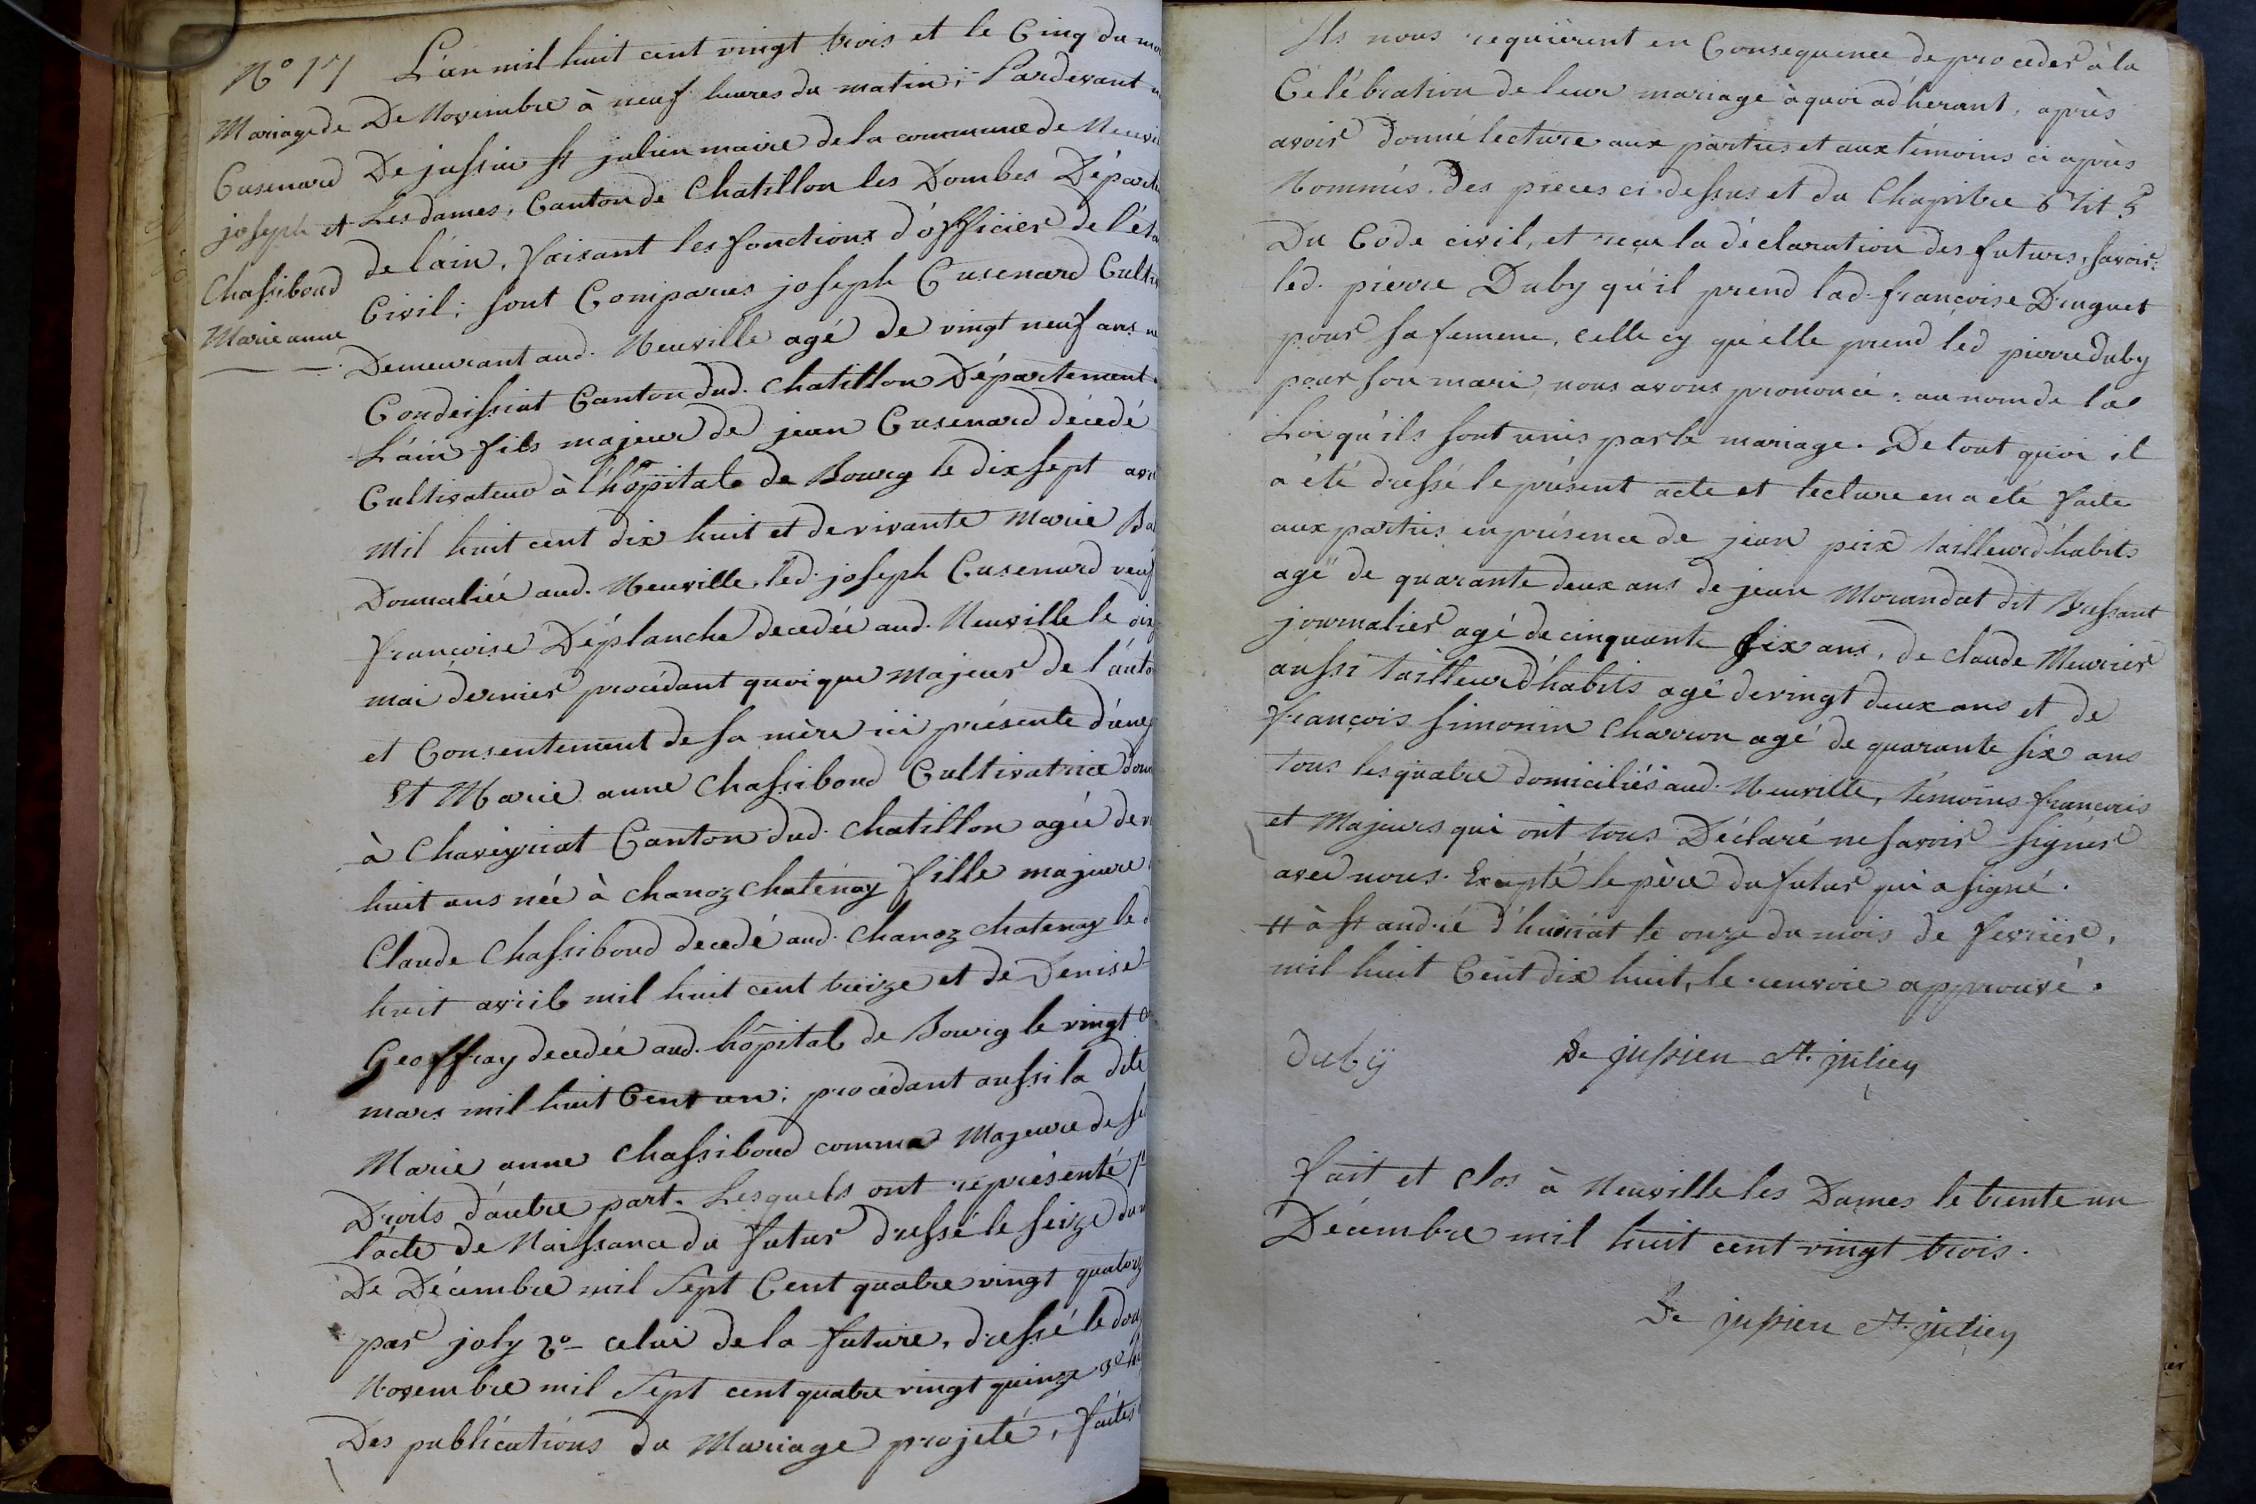 N° 17
Mariage de
Cusenard
joseph et
Chassiboud
Marie anne
L'an mil huit cent vingt trois et le Cinq du
De Novembre à neuf heures du matin; Pardevant
De jussieu St julien maire de la commune de Neuvi
Les dames, Canton de Chatillon les Dombes Départe
de l'ain, faisant les fonctions d'officier de l'éta
Civil; sont Comparus joseph Cusenard Cultiv
Demeurant aud. Neuville agé de vingt neuf ans
Condeissiat Canton dud. Chatillon Département
L'ain fils majeur de jean Cusenard décedé
Cultivateur à l'hôpital de Bourg le dix sept avr
Mil huit cent dix huit et de vivante Marie
Domiciliée aud. Neuville, led. joseph Cusenard veuf
francoise Déplanche decedée aud. Neuville le dix
mai dernier procédant quoique majeur de l'auto
et Consentement de sa mère ici présente d'une
Et Marie anne Chassiboud Cultivatrice dom
à Chaveyriat Canton dud. Chatillon agée de v
huit ans née à chanoz chatenay fille majeure
Claude Chassiboud decedé aud. Chanoz chatenay le d
huit avril mil huit cent treize et de Denise
Geoffray decedée aud. hôpital de Bourg le vingt
mars mil huit Cent un; procédant aussi la dite
Marie anne Chassiboud comme Majeure de se
Droits d'autre part. Lesquels ont représenté 1°
l'acte de Naissance du futur dressé le seize du
De Décembre mil Sept Cent quatre vingt quatorz
par joly 2° celui de la future, dressé le dou
Novembre mil Sept cent quatre vingt quinze 3°
Des publications du Mariage projeté, faites
Ils nous requièrent en Consequence de proceder à la
Célébration de leur mariage à quoi adhérant, après
avoir donné lecture aux parties et aux témoins ci après
Nommés, des pièces ci-dessus et du Chapitre 6 tit 5
Du Code civil, et reçu la déclaration des futurs, savoir:
led. pierre Duby qu'il prend lad. francoise Druguet
pour sa femme, celle cy qu'elle prend led pierre duby
pour son mari, nous avons prononcé: au nom de la
Loi qu'ils sont unis par le mariage. De tout quoi il
a été dressé le présent acte et lecture en a été faite
aux parties en présence de jean peix tailleur d'habits
agé de quarante deux ans de jean Morandat dit Bressant
journalier agé de cinquante six ans, de claude Meurier
aussi tailleur d'habits agé de vingt deux ans et de
françois simonin Charron agé de quarante six ans
tous les quatre domiciliés aud. Neuville, témoins francais
et Majeurs qui ont tous Déclaré ne savoir signer
avec nous. Excepté le père du futur qui a signé.
# à St andré d'huiriat le onze du mois de fevrier,
mil huit Cent dix huit, le renvoie approuvé.
duby De jussieu St. julien
fait et clos à Neuville les Dames le trente un
Décembre mil huit cent vingt trois.
De jussieu St. julien